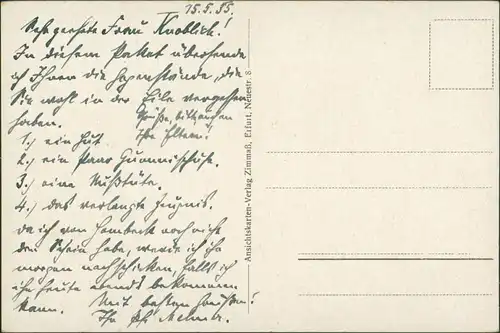 15.5.35.
Sehr geehrte Frau Knoblich!
In diesem Paket übersende
ich Ihnen die Gegenstände, die
Sie wohl in der Eile vergessen
haben.
Grüße, bitte, auch
Ihre Eltern!
1.) ein Hut
2.) ein Paar Gummischuhe.
3.) eine
4.) das verlangte Zeugnis.
Da ich von noch nicht
den Schein habe, werde ich ihn
morgen nachschicken, falls ich
ihn heute abend bekommen
kann. Mit besten Grüßen!
Ihr
Ansichtskarten-Verlag Zimmaß, Erfurt, Neuestr. 8